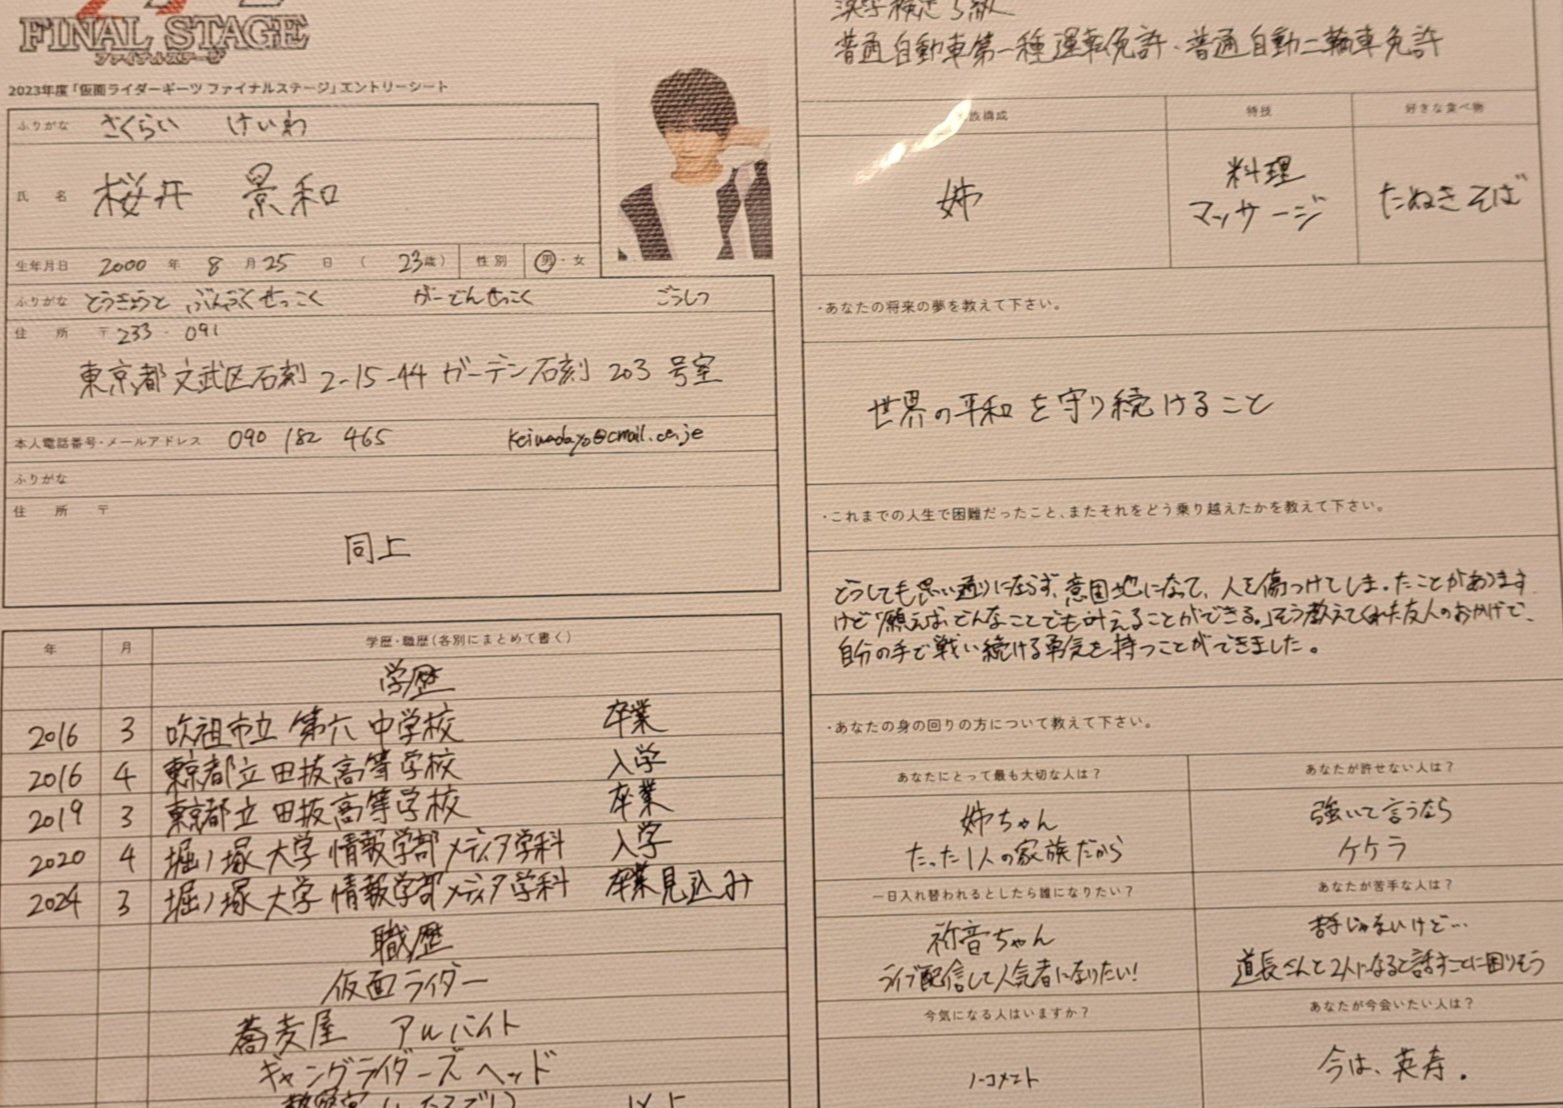 FINAL STAGE
ファイナルステージ
2023年度「仮面ライダーギーツ ファイナルステージ」エントリーシート
ふりがな さくらい けいわ
氏 名 桜井 景和
生年月日 2000 年 8 月 25 日 ( 23歳) 性別 男・女
ふりがな とうきょうと ぶんぶくせっこく がーでんせっこく ごうしつ
住 所 〒233-091
東京都文武区石刻 2-15-44 ガーデン石刻 203 号室
本人電話番号・メールアドレス 090 182 465 keiwadayo@cmail.co.je
ふりがな
住 所 〒
同上
年 月 学歴・職歴(各別にまとめて書く)
学歴
2016 3 吹祖市立 第六 中学校 卒業
2016 4 東京都立 田抜高等学校 入学
2019 3 東京都立 田抜高等学校 卒業
2020 4 堀ノ塚大学 情報学部メディア学科 入学
2024 3 堀ノ塚大学 情報学部メディア学科 卒業見込み
職歴
仮面ライダー
蕎麦屋 アルバイト
ギャングライダーズ ヘッド
以上
漢字検定5級
普通自動車第一種運転免許・普通自動二輪車免許
族構成 特技 好きな食べ物
姉
料理
マッサージ
たぬきそば
・あなたの将来の夢を教えて下さい。
世界の平和を守り続けること
・これまでの人生で困難だったこと、またそれをどう乗り越えたかを教えて下さい。
どうしても思い通りにならず、意固地になって、人を傷つけてしまったことがあります
けど「願えばどんなことでも叶えることができる。」そう教えてくれた友人のおかげで、
自分の手で戦い続ける勇気を持つことができました。
・あなたの身の回りの方について教えて下さい。
あなたにとって最も大切な人は?
姉ちゃん
たった1人の家族だから
あなたが許せない人は?
強いて言うなら
ケケラ
一日入れ替われるとしたら誰になりたい?
祢音ちゃん
ライブ配信して人気者になりたい!
あなたが苦手な人は?
苦手じゃないけど…
道長さんと2人になると話すことに困りそう
今気になる人はいますか?
ノーコメント
あなたが今会いたい人は?
今は、英寿.